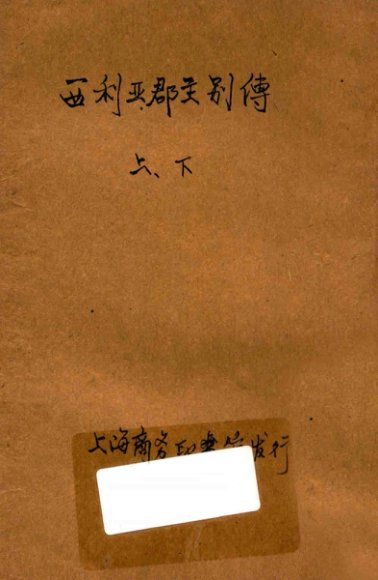 西利亚郡主别傳
上、下
上海商务印书馆发行